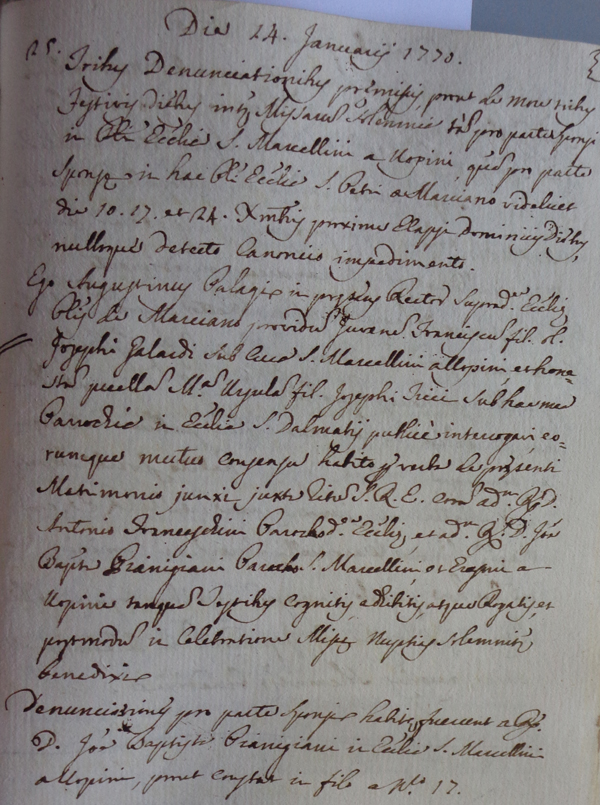 Die 24. Januarij 1770.
25. Tribus Denunciationibus premissis, prout de more tribus
festivis diebus inter Missarum solemnia tam pro parte sponsi
in Pli Ecclia S. Marcellini a Uopini, quam pro parte
sponsę in hac Pli Ecclia S. Petri a Marciano videlicet
die 10. 17. et 24. Xmbris proxime elapsi Dominicis diebus,
nulloque detecto Canonico impedimento.
Ego Augustinus Palagi in prępsens Rector suprad. Eccłię
Plis de Marciano providum Juvenem Franciscum fil. ol.
Josephi Galardi sub cura S. Marcellini a Uopini, et hone-
stam puellam M.a Ursulam fil. Josephi Ticci sub hac mea
Parochia in Ecclia S. Dalmatij publicè interrogavi, eo-
rumque mutuo consensu habito p verba de pręsenti
Matrimonio junxi juxta ritum S. R. E. coram adm. Rdo D.
Antonio Franceschini Parocho d. Eccłię, et adm. R. D. Joa
Bapta Gianigiani Parocho S. Marcellini, et Erasmi a
Uopini tamquam Testibus cognitis adhibitis, atque Rogatis, et
postmodum in celebratione Missę Nuptias solemniter
benedixi
Denunciationes pro parte sponsę habitę fuerunt a R.
D. Joa Baptista Gianigiani in Ecclia S. Marcellini
a Uopini, prout constat in filo a No 17.